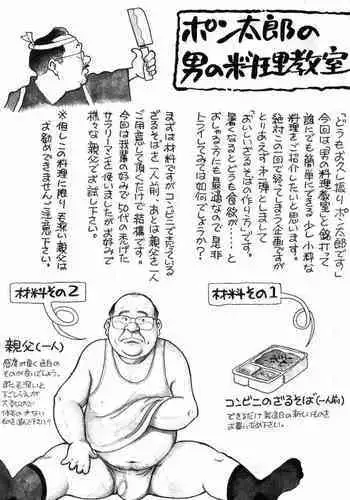 ポン太郎の
男の料理教室
『どうもお久し振りポン太郎です』
今回は「男の料理教室」と銘打って
誰にでも簡単にできる少し小粋な
料理をご紹介したいと思います。
絶対この1回で終ってしまう企画ですが
とりあえず、第一弾としまして
「おいしいざるそばの作り方」です。
暑くなるとどうも食欲が……と
おっしゃる方にも最適なので是非
トライしてみては如何でしょうか？
まずは材料ですがコンビニで売っている
ざるそばを一人前、あとは親父を一人
ご用意して頂くだけで結構です。
今回は我輩の好みで50代のハゲた
サラリーマンを使いましたがお好みで
様々な親父でお試し下さい。
※但しこの料理に限り毛深い親父は
お勧めできませんご注意下さい。
材料その1
コンビニのざるそば(一人前)
できるだけ製造日の新しいものを
お買い求め下さい。
材料その2
親父(一人)